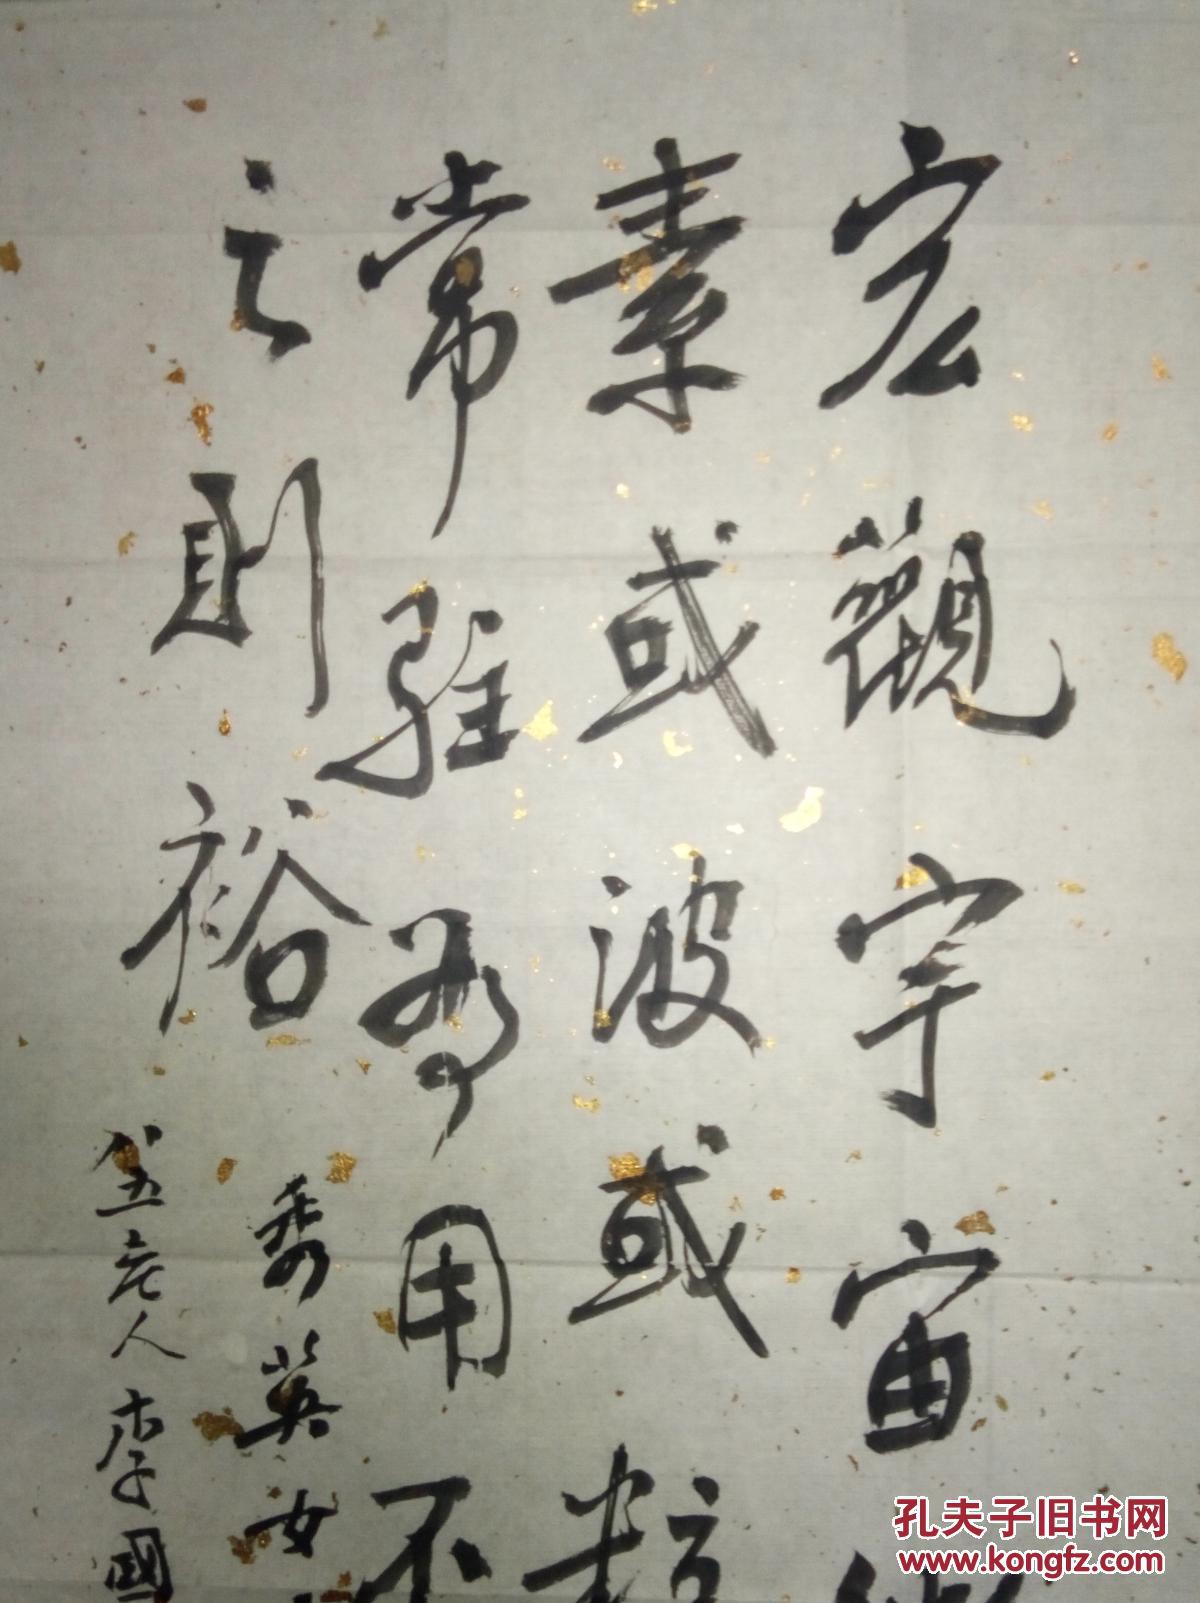 宏觀宇宙
素或波或粒
常駐為用不
之則裕
秀英女
八五老人李國
孔夫子旧书网
www.kongfz.com